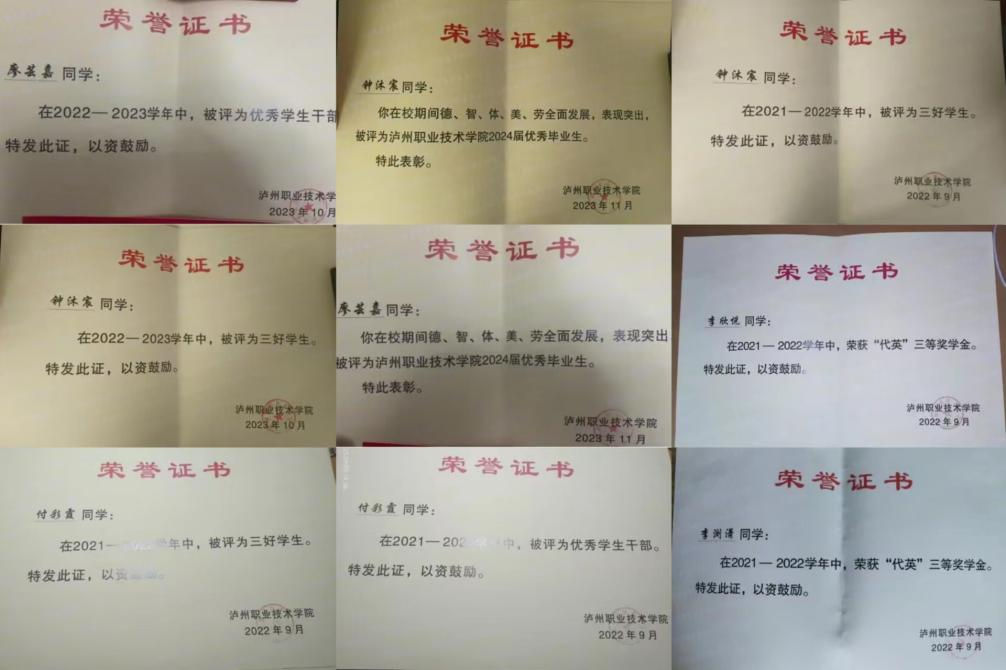 荣誉证书
廖芸嘉 同学：
在2022—2023学年中，被评为优秀学生干部
特发此证，以资鼓励。
泸州职业技术学
2023年10月
荣誉证书
钟沐宸 同学：
你在校期间德、智、体、美、劳全面发展，表现突出，
被评为泸州职业技术学院2024届优秀毕业生。
特此表彰。
泸州职业技术学院
2023年11月
荣誉证书
钟沐宸 同学：
在2021—2022学年中，被评为三好学生。
特发此证，以资鼓励。
泸州职业技术学院
2022年9月
荣誉证书
钟沐宸 同学：
在2022—2023学年中，被评为三好学生。
特发此证，以资鼓励。
泸州职业技术学院
2023年10月
荣誉证书
廖芸嘉 同学：
你在校期间德、智、体、美、劳全面发展，表现突出
被评为泸州职业技术学院2024届优秀毕业生。
特此表彰。
泸州职业技术学院
2023年11月
荣誉证书
李欣悦 同学：
在2021—2022学年中，荣获“代英”三等奖学金。
特发此证，以资鼓励。
泸州职业技术学院
2022年9月
荣誉证书
付彩霞 同学：
在2021—2022学年中，被评为三好学生。
特发此证，以资鼓励。
泸州职业技术学院
2022年9月
荣誉证书
付彩霞 同学：
在2021—202 中，被评为优秀学生干部。
特发此证，以资鼓励。
泸州职业技术学院
2022年9月
荣誉证书
同学：
在2021—2022学年中，荣获“代英”三等奖学金。
特发此证，以资鼓励。
泸州职业技术学院
2022年9月